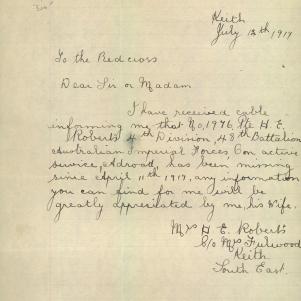 Keith
July 12th 1917
To the Red cross
Dear Sir or Madam
I have received cable
informing me that No, 1976, Pte H. E.
Roberts 4th Division, 48th Battalion
Australian Imperial Forces on active
service, Abroad, has been missing
since April 11th 1917, any information
you can find for me will be
greatly appreciated by me, his Wife.
Mrs H E. Roberts
C/o Mrs Fulwood
Keith
South East.